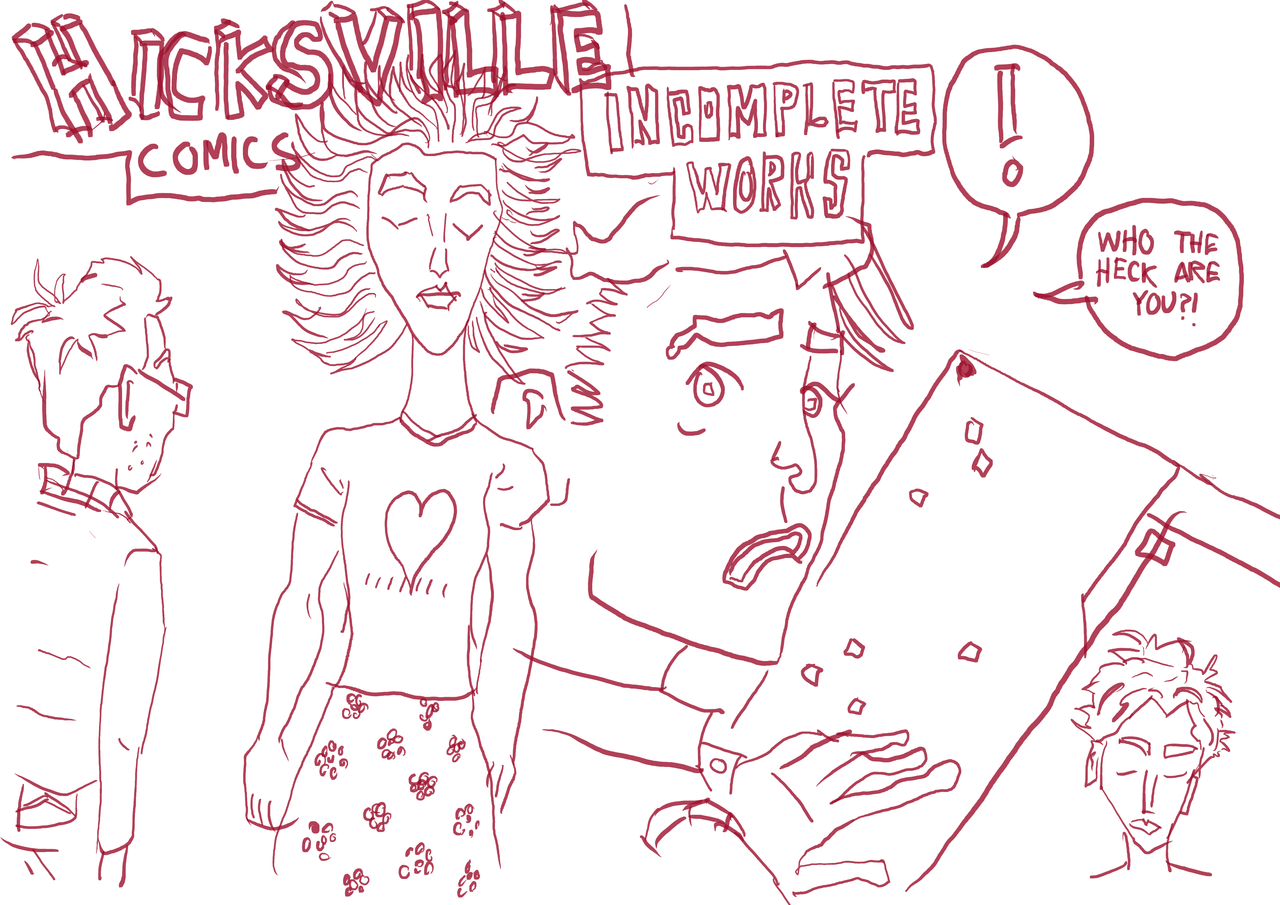 HICKSVILLE
COMICS
INCOMPLETE
WORKS
!
WHO THE
HECK ARE
YOU?!